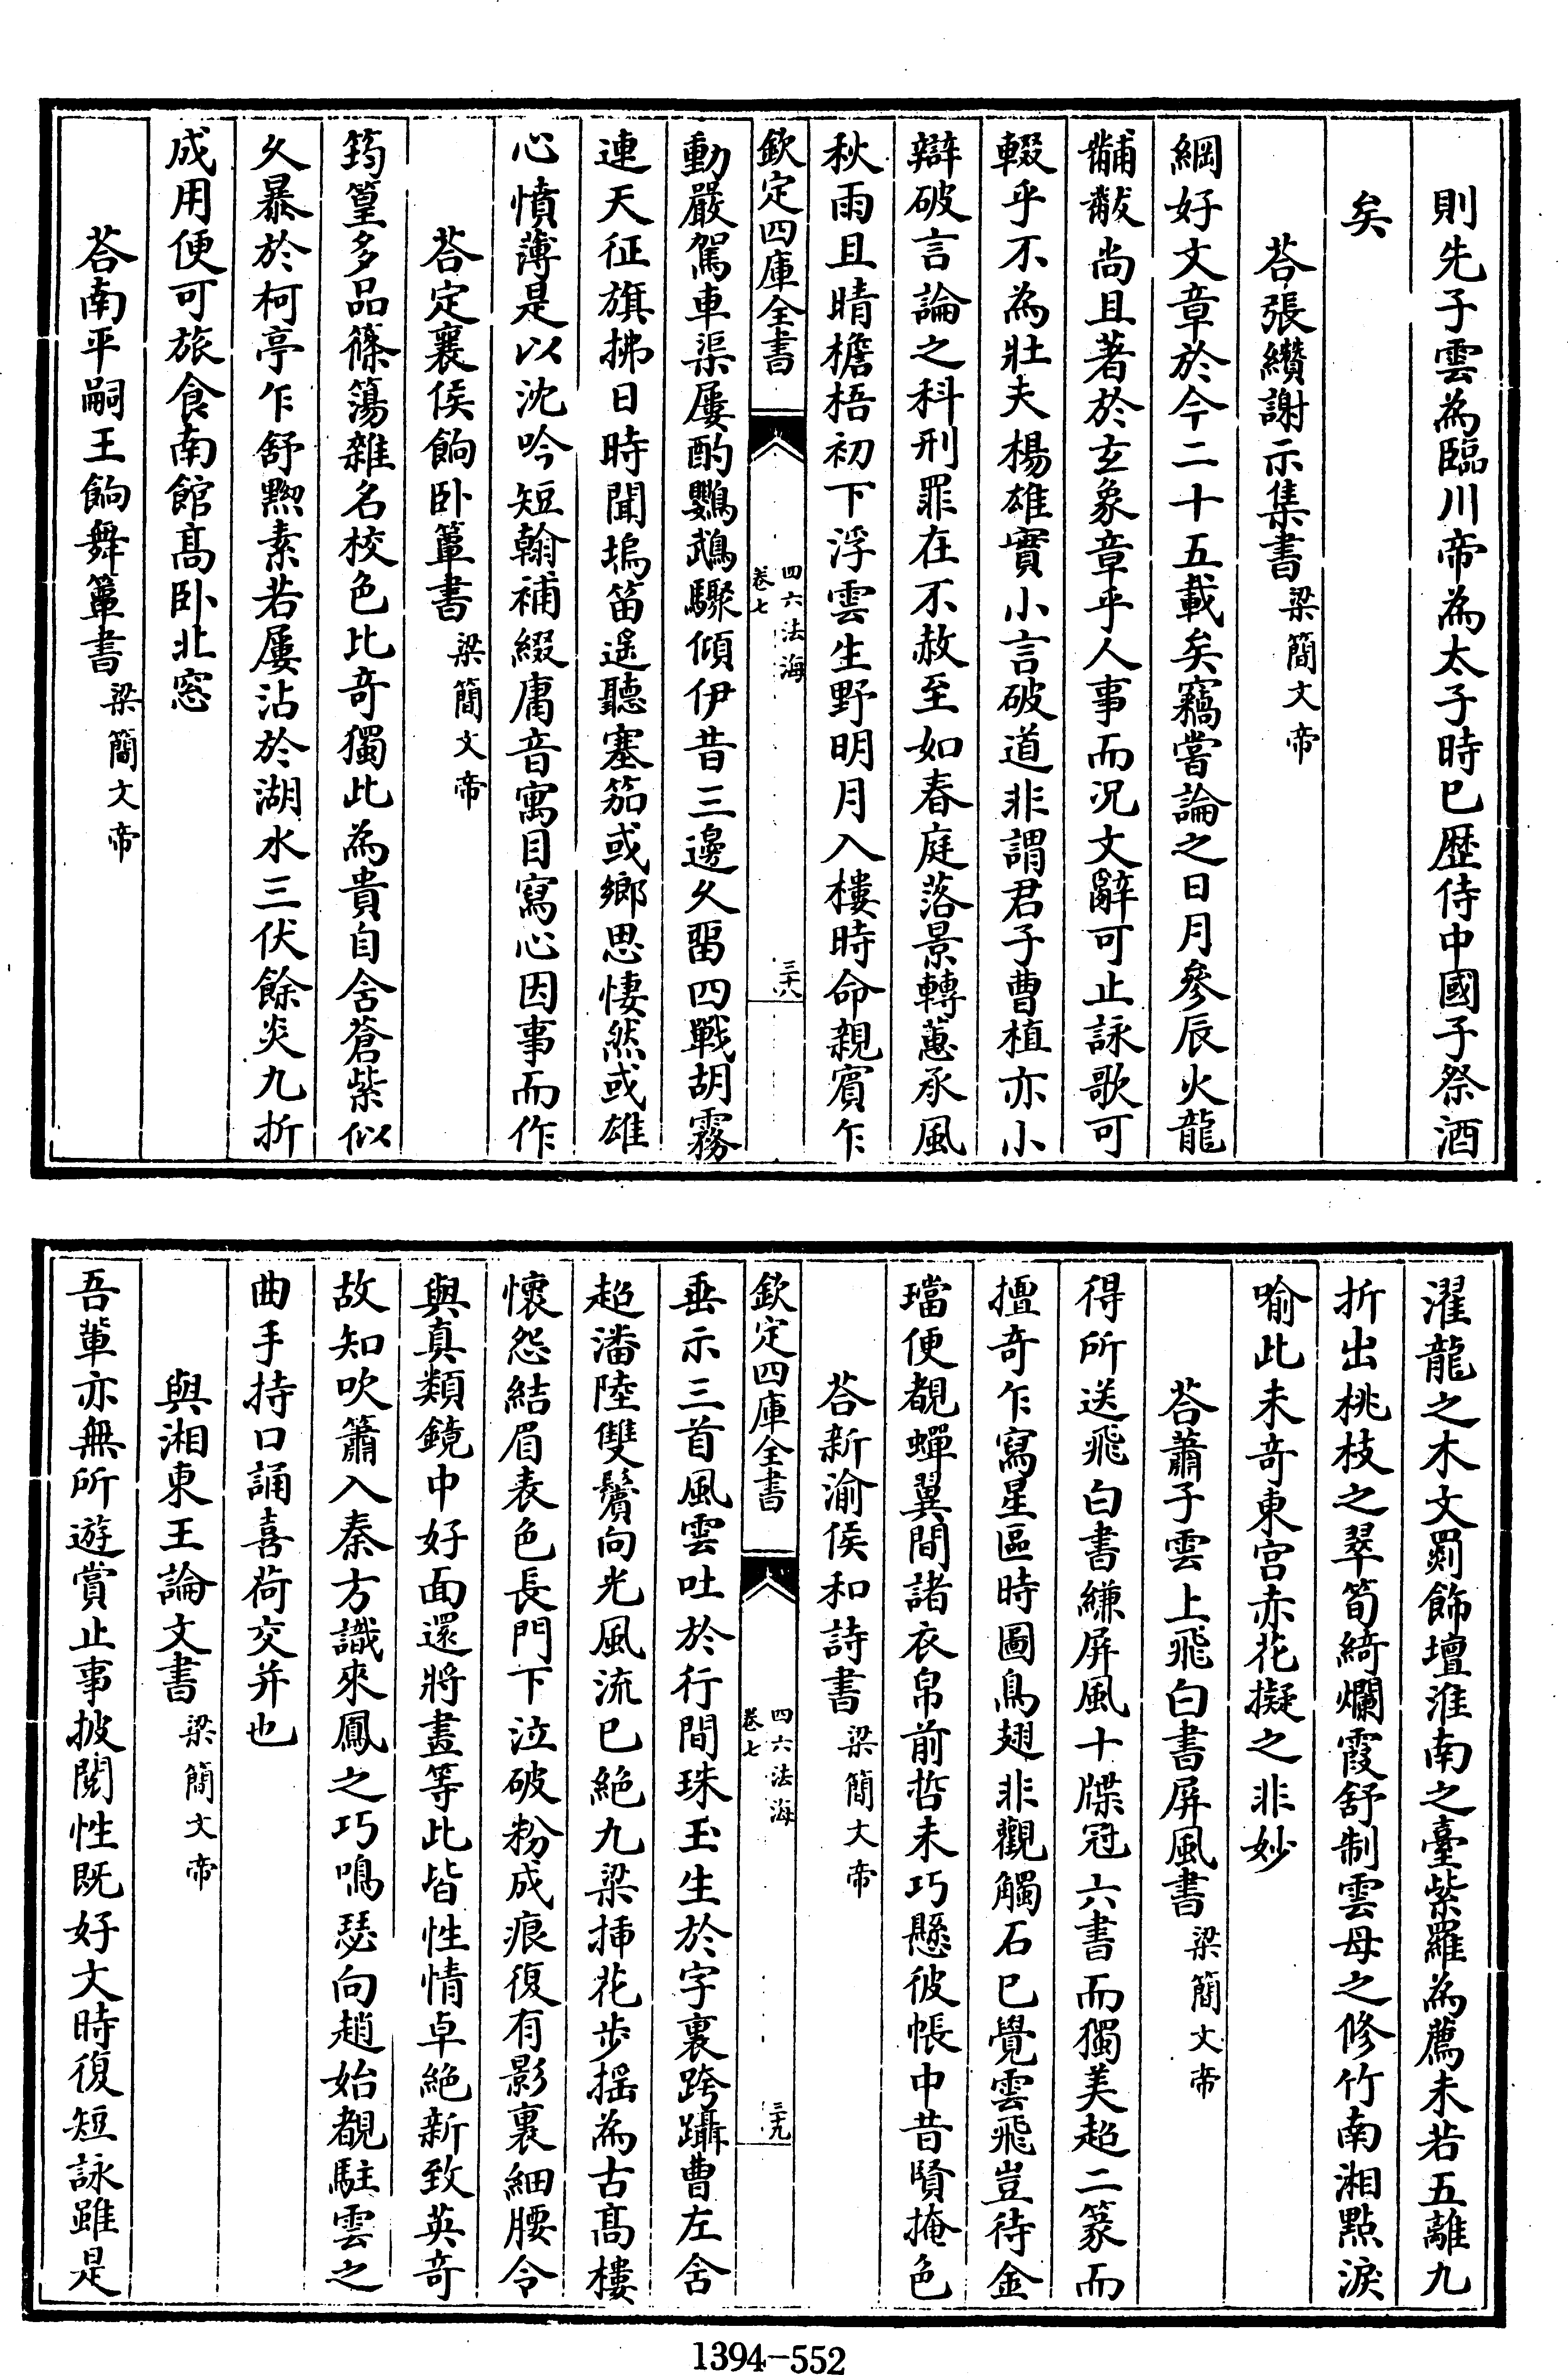 則先子雲為臨川帝為太子時已歴侍中國子祭酒
矣
荅張纘謝示集書梁簡文帝
綱好文章於今二十五載矣竊嘗論之日月參辰火龍
黼黻尚且著於玄象章乎人事而況文辭可止詠歌可
輟乎不為壯夫楊雄實小言破道非謂君子曹植亦小
辯破言論之科刑罪在不赦至如春庭落景轉蕙承風
秋雨且晴檐梧初下浮雲生野明月入樓時命親賓乍
欽定四庫全書
四六法海
卷七
三十八
動嚴駕車渠屢酌鸚鵡驟傾伊昔三邊久留四戰胡霧
連天征旗拂日時聞塢笛遥聽塞笳或鄉思悽然或雄
心憤薄是以沈吟短翰補綴庸音寓目寫心因事而作
荅定襄侯餉卧簟書梁簡文帝
筠篁多品篠簜雜名校色比奇獨此為貴自含蒼紫似
久暴於柯亭乍舒黝素若屢沾於湖水三伏餘炎九折
成用便可旅食南館高卧北窓
荅南平嗣王餉舞簟書梁簡文帝
濯龍之木文罽飾壇淮南之臺紫羅為薦未若五離九
折出桃枝之翠筍綺爛霞舒制雲母之修竹南湘點淚
喻此未奇東宮赤花擬之非妙
荅蕭子雲上飛白書屏風書梁簡文帝
得所送飛白書縑屏風十牒冠六書而獨美超二篆而
擅奇乍寫星區時圖鳥翅非觀觸石已覺雲飛豈待金
璫便覩蟬翼間諸衣帛前哲未巧懸彼帳中昔賢掩色
荅新渝侯和詩書梁簡文帝
欽定四庫全書
四六法海
卷七
三十九
垂示三首風雲吐於行間珠玉生於字裏跨躡曹左含
超潘陸雙鬢向光風流已絶九梁揷花步摇為古高樓
懷怨結眉表色長門下泣破粉成痕復有影裏細腰令
與真類鏡中好面還將畫等此皆性情卓絶新致英奇
故知吹簫入秦方識來鳳之巧鳴瑟向趙始覩駐雲之
曲手持口誦喜荷交并也
與湘東王論文書梁簡文帝
吾輩亦無所遊賞止事披閲性既好文時復短詠雖是
1394-552